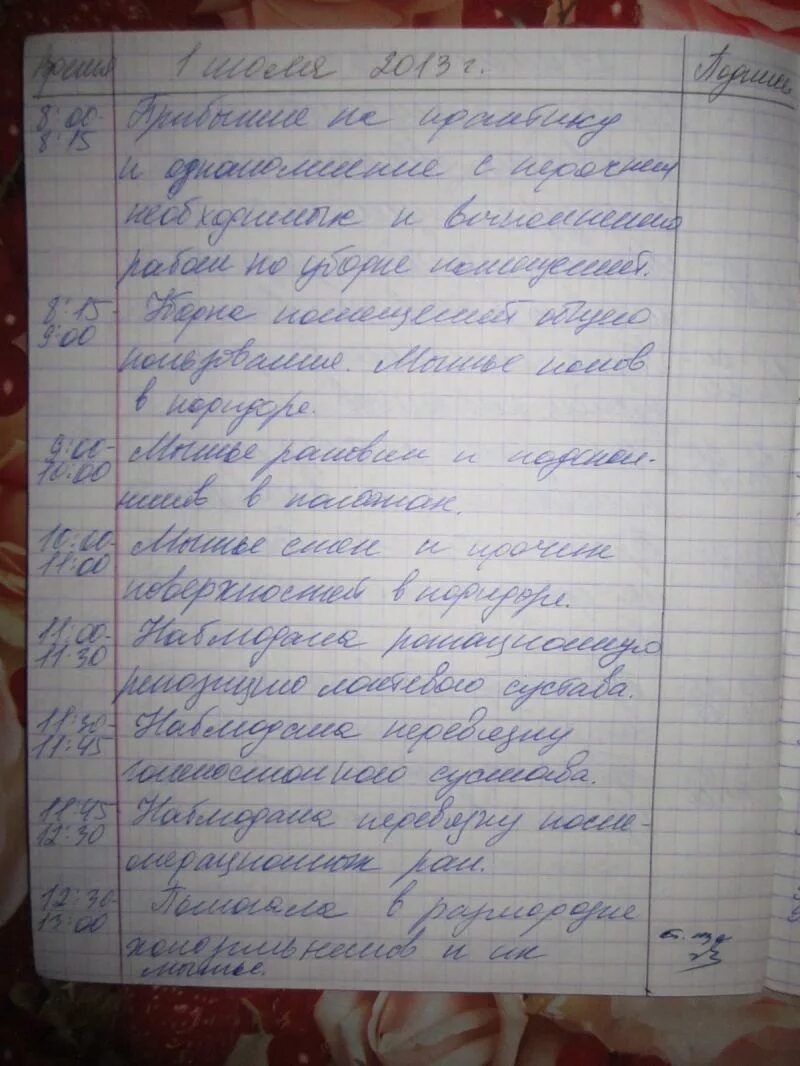 Время 1 июля 2013 г. Подпись
8:00- Прибытие на практику
8:15 и ознакомление с перечнем
необходимых к выполнению
работ по уборке помещений.
8:15- Уборка помещений общего
9:00 пользования. Мытье полов
в коридоре.
9:00- Мытье раковин и подокон-
10:00 ников в палатах.
10:00- Мытье стен и прочих
11:00 поверхностей в коридоре.
11:00- Наблюдала ротационную
11:30 репозицию локтевого сустава.
11:30- Наблюдала перевязку
11:45 голеностопного сустава.
11:45- Наблюдала перевязку после-
12:30 операционных ран.
12:30- Помогала в разморозке
13:00 холодильников и их
мытье.